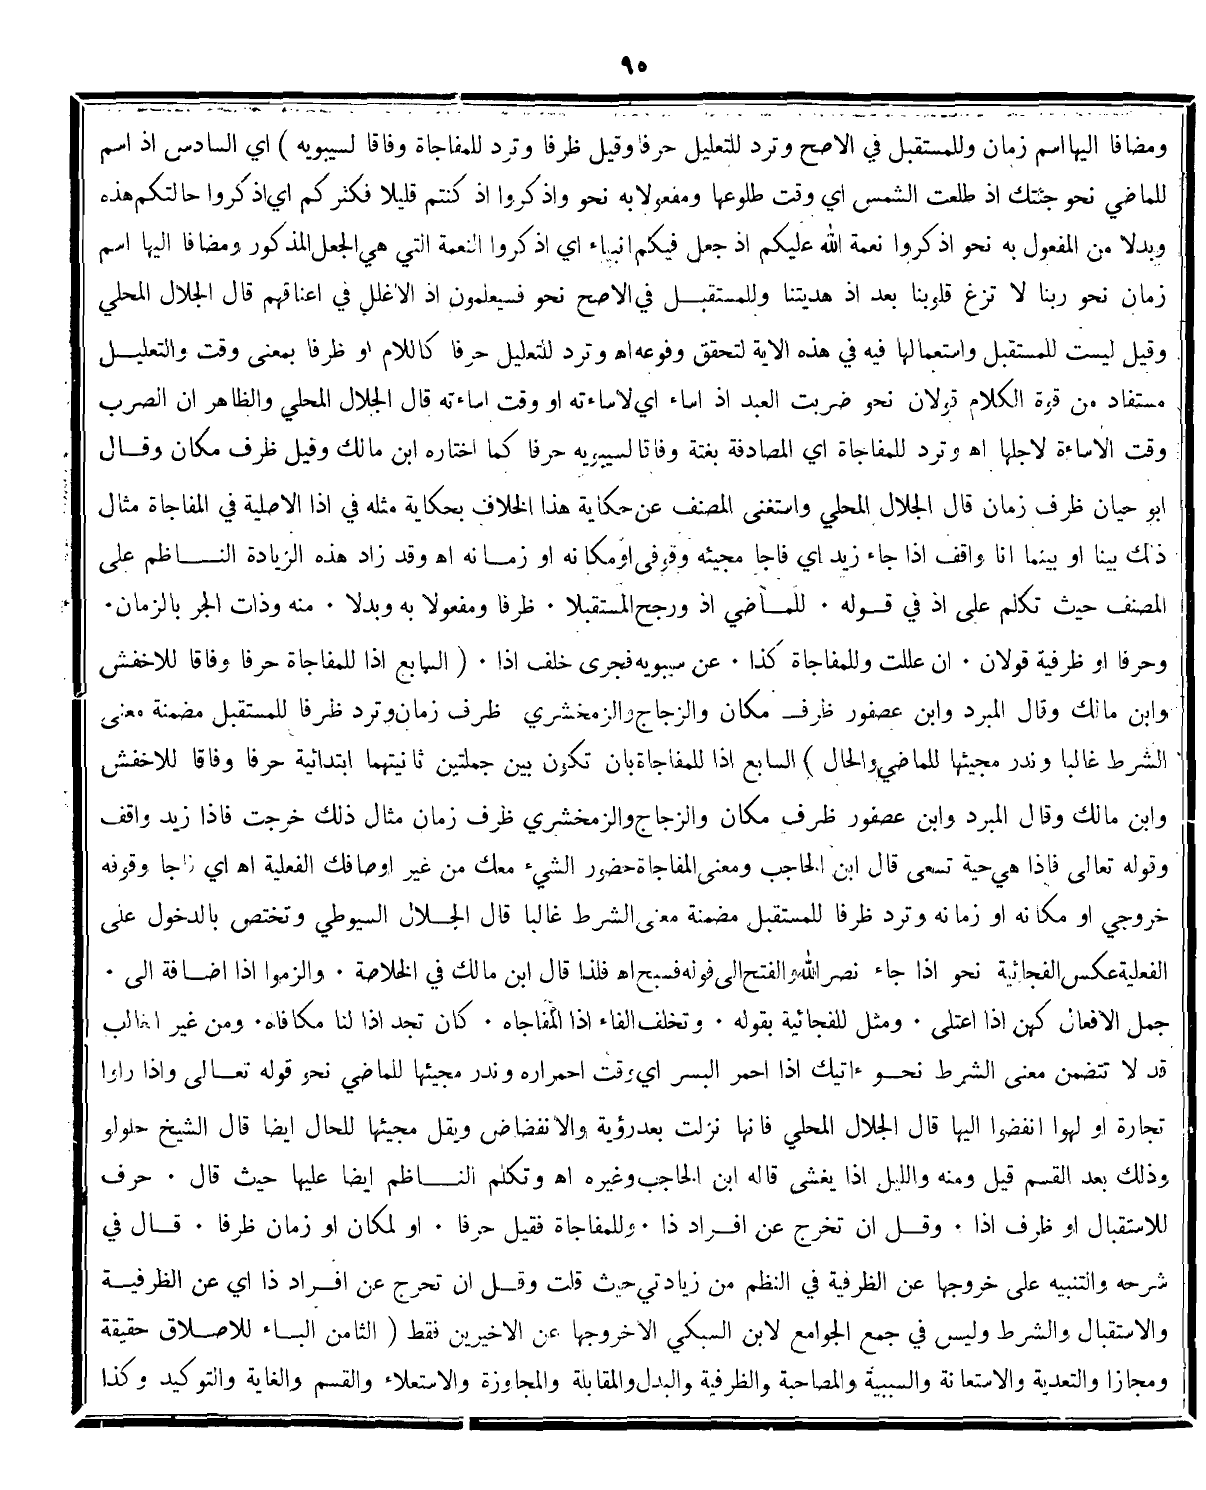 ٩٥
ومضافا اليها اسم زمان وللمستقبل في الاصح وترد للتعليل حرفا وقيل ظرفا وترد للمفاجاة وفاقا لسيبويه ) اي السادس اذ اسم
للماضي نحو جئتك اذ طلعت الشمس اي وقت طلوعها ومفعولا به نحو واذكروا اذ كنتم قليلا فكثركم اي اذكروا حالتكم هذه
وبدلا من المفعول به نحو اذكروا نعمة الله عليكم اذ جعل فيكم انبياء اي اذكروا النعمة التي هي الجعل المذكور ومضافا اليها اسم
زمان نحو ربنا لا تزغ قلوبنا بعد اذ هديتنا وللمستقبـــل في الاصح نحو فسيعلمون اذ الاغلل في اعناقهم قال الجلال المحلي
وقيل ليست للمستقبل واستعمالها فيه في هذه الاية لتحقق وقوعه اه وترد للتعليل حرفا كاللام او ظرفا بمعنى وقت والتعليـــل
مستفاد من قوة الكلام قولان نحو ضربت العبد اذ اساء اي لاساءته او وقت اساءته قال الجلال المحلي والظاهر ان الضرب
وقت الاساءة لاجلها اه وترد للمفاجاة اي المصادفة بغتة وفاقا لسيبويه حرفا كما اختاره ابن مالك وقيل ظرف مكان وقـــال
ابو حيان ظرف زمان قال الجلال المحلي واستغنى المصنف عن حكاية هذا الخلاف بحكاية مثله في اذا الاصلية في المفاجاة مثال
ذلك بينا او بينما انا واقف اذا جاء زيد اي فاجا مجيئه وقوفي او مكانه او زمـــانه اه وقد زاد هذه الزيادة النـــــاظم على
المصنف حيث تكلم على اذ في قـــوله ٠ للمـــاضي اذ ورجح المستقبلا ٠ ظرفا ومفعولا به وبدلا ٠ منه وذات الجر بالزمان٠
وحرفا او ظرفية قولان ٠ ان عللت وللمفاجاة كذا ٠ عن سيبويه فجرى خلف اذا ٠ ( السابع اذا للمفاجاة حرفا وفاقا للاخفش
وابن مالك وقال المبرد وابن عصفور ظرف مكان والزجاج والزمخشري ظرف زمان وترد ظرفا للمستقبل مضمنة معنى
الشرط غالبا وندر مجيئها للماضي والحال ) السابع اذا للمفاجاة بان تكون بين جملتين ثانيتهما ابتدائية حرفا وفاقا للاخفش
وابن مالك وقال المبرد وابن عصفور ظرف مكان والزجاج والزمخشري ظرف زمان مثال ذلك خرجت فاذا زيد واقف
وقوله تعالى فاذا هي حية تسعى قال ابن الحاجب ومعنى المفاجاة حضور الشيء معك من غير اوصافك الفعلية اه اي فاجا وقوفه
خروجي او مكانه او زمانه وترد ظرفا للمستقبل مضمنة معنى الشرط غالبا قال الجـــلال السيوطي وتختص بالدخول على
الفعلية عكس الفجائية نحو اذا جاء نصر الله والفتح الى قوله فسبح اه فلذا قال ابن مالك في الخلاصة ٠ والزموا اذا اضـــافة الى ٠
جمل الافعال كهن اذا اعتلى ٠ ومثل للفجائية بقوله ٠ وتخلف الفاء اذا المفاجاه ٠ كان تجد اذا لنا مكافاه٠ ومن غير الغالب
قد لا تتضمن معنى الشرط نحـــو ءاتيك اذا احمر البسر اي وقت احمراره وندر مجيئها للماضي نحو قوله تعـــالى واذا راوا
تجارة او لهوا انفضوا اليها قال الجلال المحلي فانها نزلت بعد رؤية والانفضاض ويقل مجيئها للحال ايضا قال الشيخ حلولو
وذلك بعد القسم قيل ومنه والليل اذا يغشى قاله ابن الحاجب وغيره اه وتكلم النـــــاظم ايضا عليها حيث قال ٠ حرف
للاستقبال او ظرف اذا ٠ وقـــل ان تخرج عن افـــراد ذا ٠ وللمفاجاة فقيل حرفا ٠ او لمكان او زمان ظرفا ٠ قـــال في
شرحه والتنبيه على خروجها عن الظرفية في النظم من زيادتي حيث قلت وقـــل ان تخرج عن افـــراد ذا اي عن الظرفيـــة
والاستقبال والشرط وليس في جمع الجوامع لابن السبكي الا خروجها عن الاخيرين فقط ( الثامن البـــاء للالصـــاق حقيقة
ومجازا والتعدية والاستعانة والسببية والمصاحبة والظرفية والبدل والمقابلة والمجاوزة والاستعلاء والقسم والغاية والتوكيد وكذا